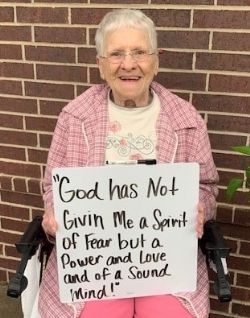 "God has Not
Givin Me a Spirit
of Fear but a
Power and Love
and of a Sound
Mind!"